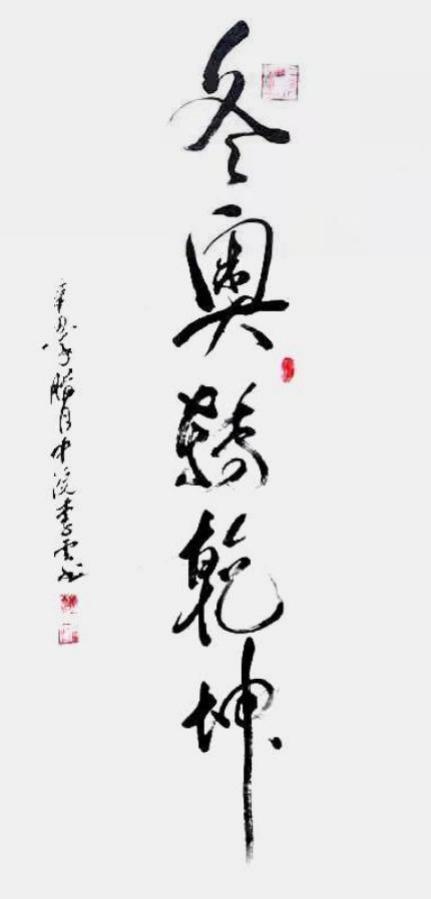 冬奥 乾坤
辛丑年腊月中浣李雲书